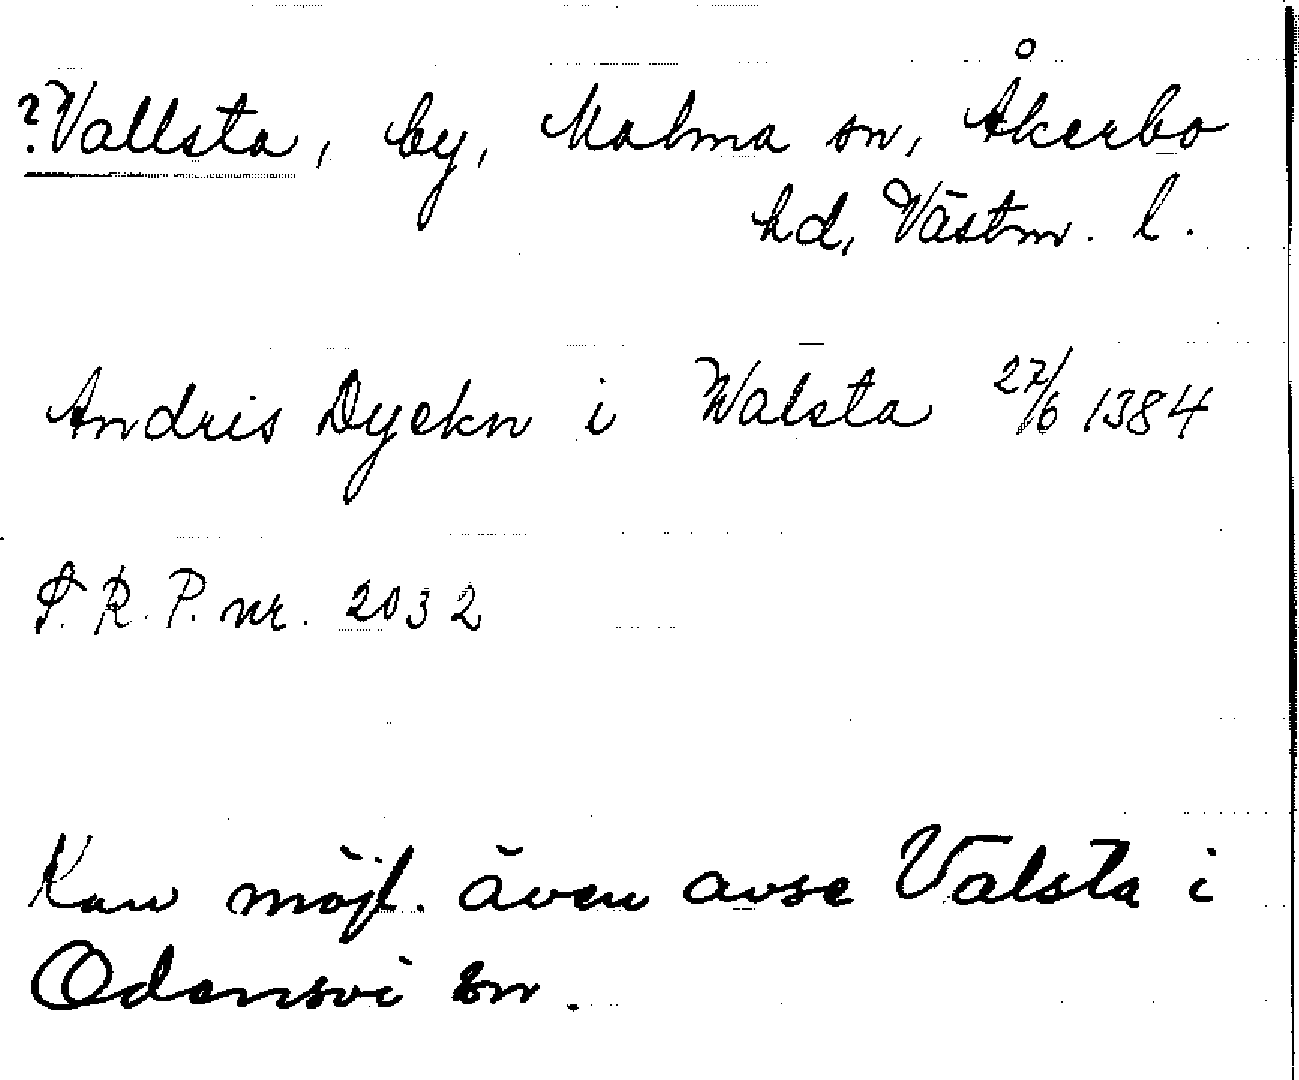 ?Vallsta, by, Malma sn, Åkerbo
hd, Västm. l.
Andris Dyekn i Walsta 27/6 1384
S.R.P. nr. 2032
Kan möjl. även avse Valsta i
Odensvi sn.